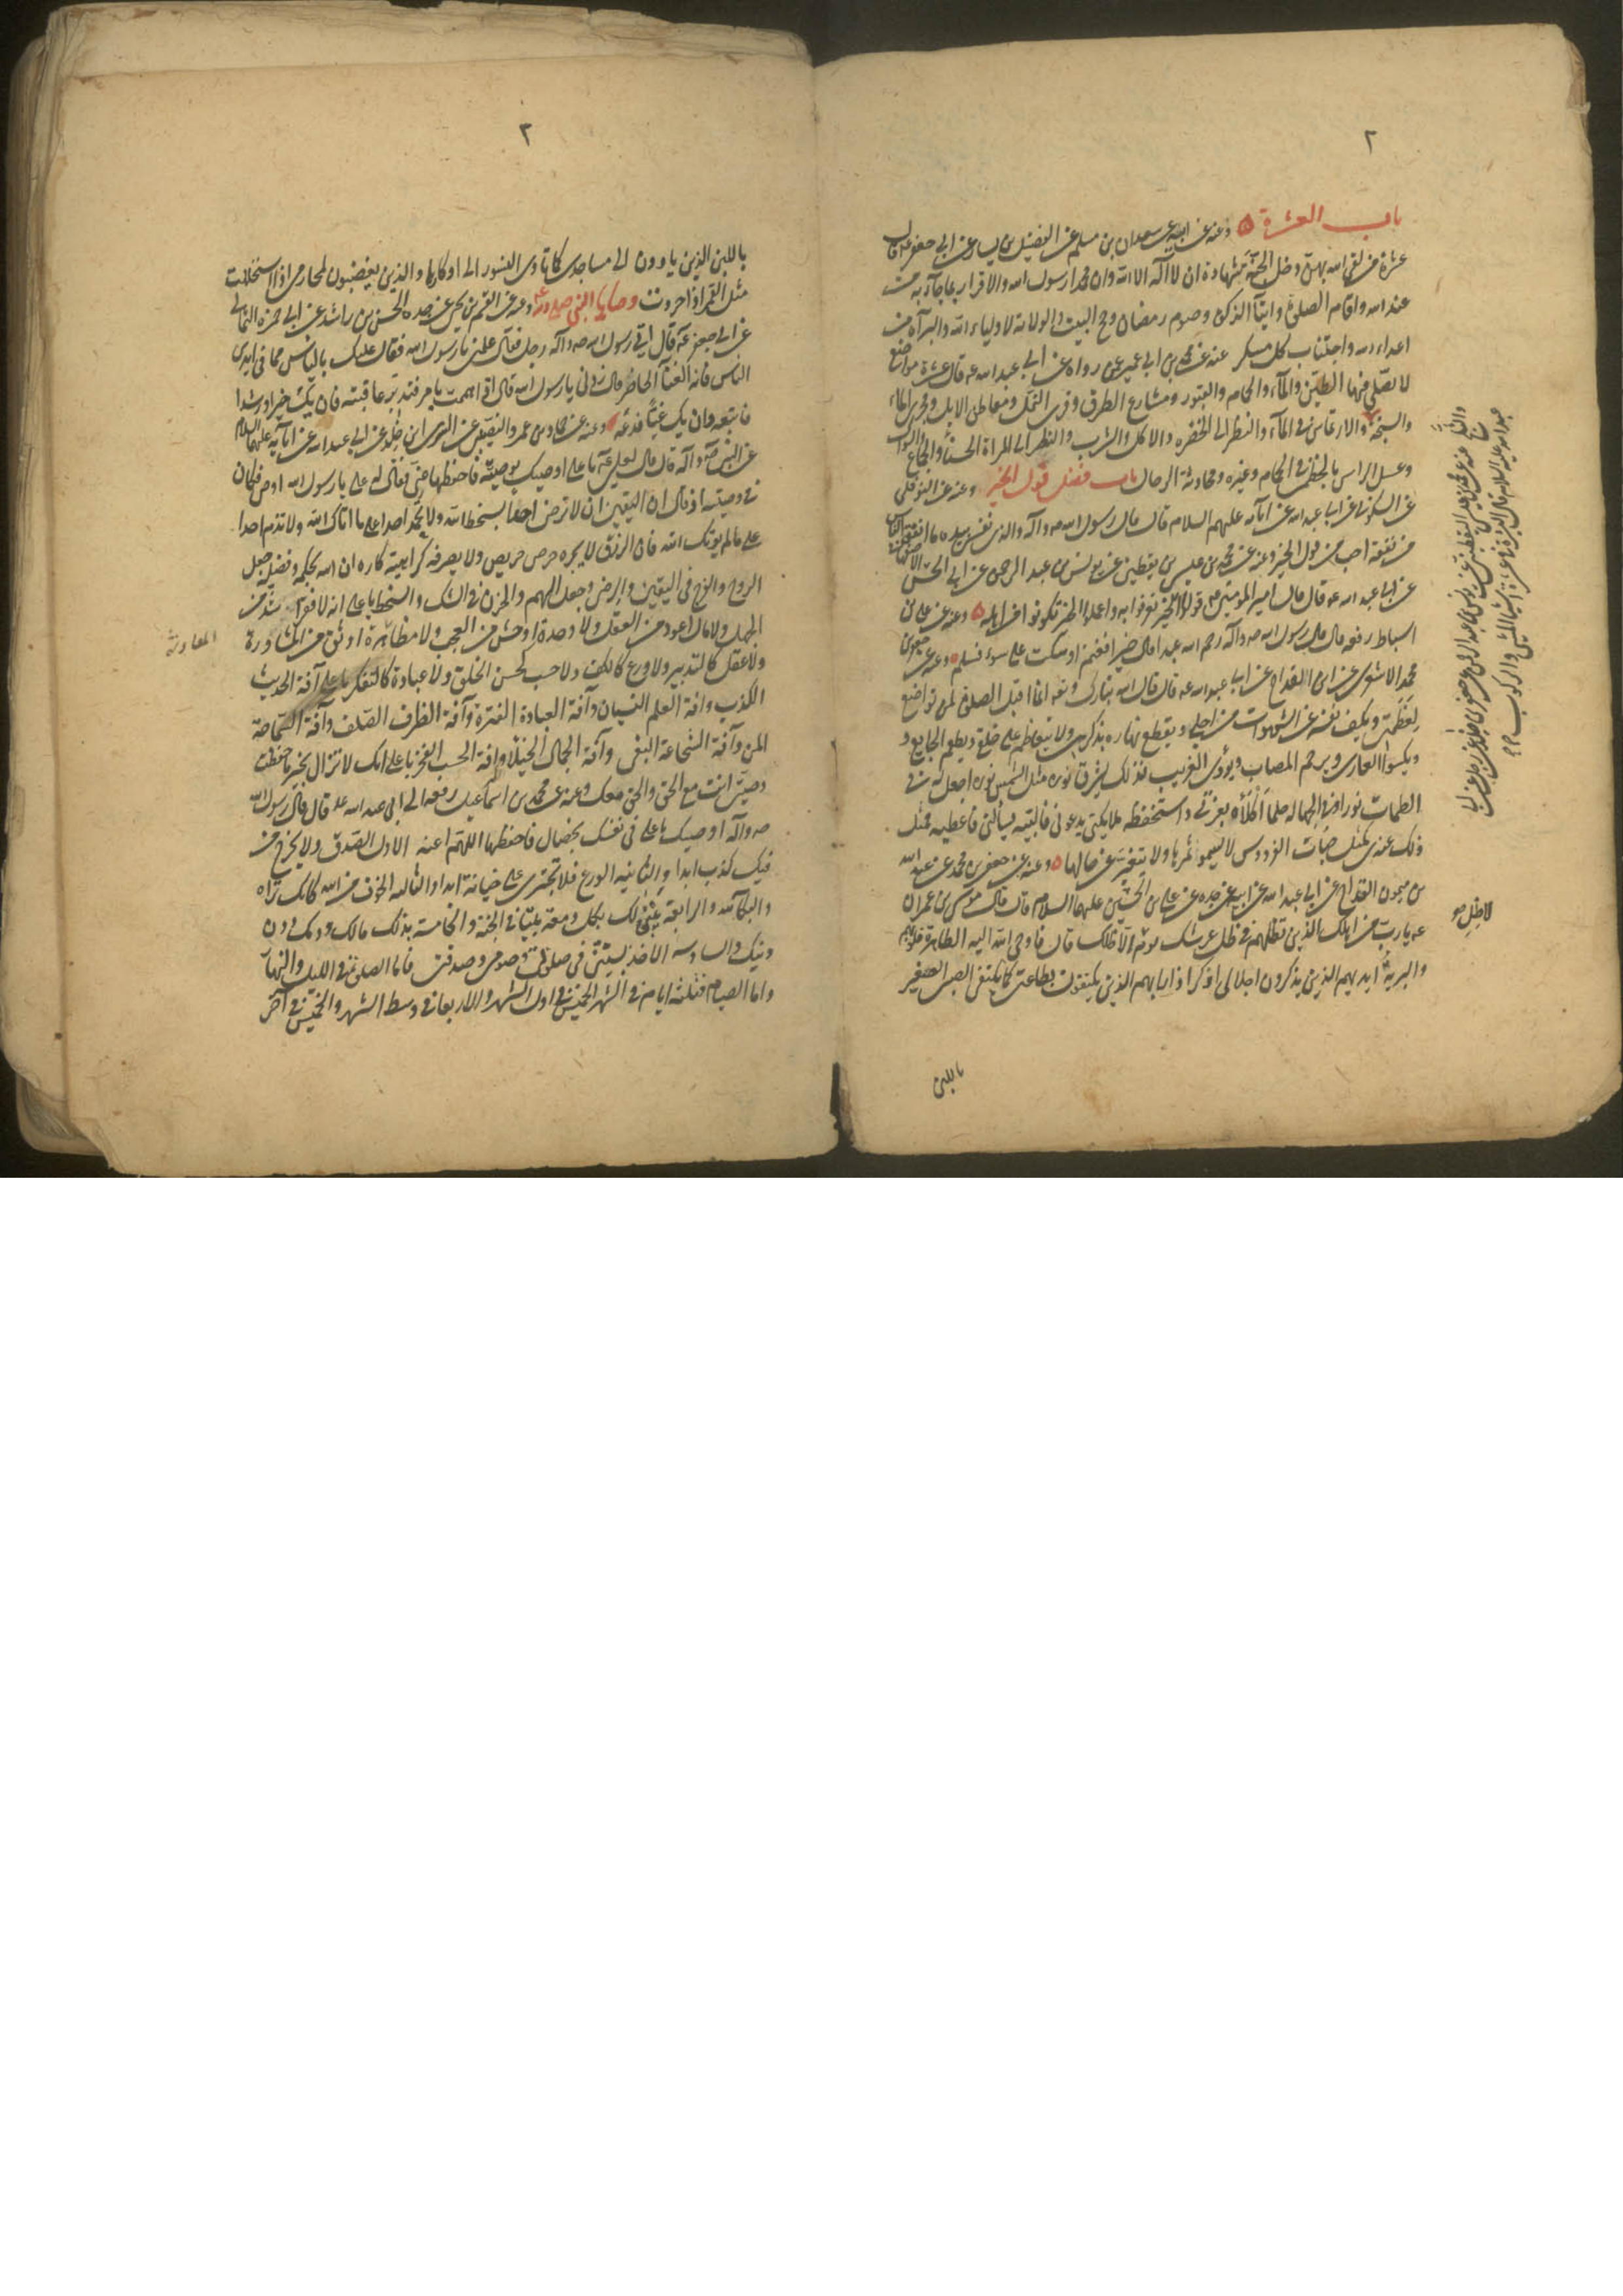 ٢
باب العشرة ۵ وعنه عن ابيه عن سعدان بن مسلم عن الفضيل بن يسار عن ابي جعفر ع قال
عشرة من لقى الله بهن دخل الجنة شهادة ان لا اله الا الله وان محمدا رسول الله والاقرار بما جاء به من
عند الله واقام الصلوة وايتآ الزكوة وصوم رمضان وحج البيت والولاية لاولياء الله والبرآة من
اعداء الله واجتناب كل مسكر عنه عن محمد بن ابي عمير عمن رواه عن ابي عبد الله عه قال عشرة مواضع
لا تصلى فيها الطين والمآء والحمام والقبور ومشارع الطرق وقرى النمل ومعاطن الابل ومجرى المآء
والسبخة والارتماس في المآء والنظر الى الخضرة والاكل والشرب والنظر الى المراة الحسنآ والجماع والسواك
وغسل الراس بالخطمى في الحمام وغيره ومحادثة الرجال باب فضل قول الخير وعنه عن النوفلى
عن السكونى عن ابى عبد الله عن آبآئه عليهم السلام قال قال رسول الله صه وآله والذى نفسى بيده ما انفق الناس
من نفقة احب من قول الخير وعنه عن محمد بن عيسى بن يقطين عن يونس بن عبد الرحمن عن ابى الحسن الاصفهانى
عن ابى عبد الله عه قال قال امير المؤمنين عه قولوا الخير تعرفوا به واعملوا الخير تكونوا من اهله ۵ وعنه عن على بن
اسباط رفعه قال قال رسول الله صه وآله رحم الله عبدا قال خيرا فغنم او سكت على سوء فسلم ۵ وعنه عن جعفر بن
محمد الاشعرى عن ابن القداح عن ابى عبد الله عه قال قال الله تبارك وتعه انما اقبل الصلوة لمن تواضع
لعظمتى ويكف نفسه عن الشهوات من اجلى ويقطع نهاره بذكرى ولا يتعاظم على خلقى ويطعم الجايع و
ويكسوا العارى ويرحم المصاب ويؤوى الغريب فذلك يشرق نوره مثل الشمس نوره اجعل له في
الظلمات نورا وفي الجهالة حلما اكلأه بعزتى واستحفظه ملايكتى يدعونى فالبيه ويسألنى فاعطيه فمثل
ذلك عندى كمثل جنات الفردوس لا يسمو ثمرها ولا يتغير عن حالها ۵ وعنه عن جعفر بن محمد عن عبد الله
بن ميمون القداح عن ابى عبد الله عن ابيه عن جده عن على بن الحسين عليهما السلام قال قال موسى بن عمران
عه يا رب من اهلك الذين تظلهم في ظل عرشك يوم لا ظل الا ظلك قال فاوحى الله اليه الطاهرة قلوبهم
والبرية ايديهم الذين يذكرون اجلالى اذ ذكروا ربهم الذين يكتفون بطاعتى كما يكتفى الصبى الصغير
باللبن
٣
باللبن الذين ياوون الى مساجدى كما تاوى النسور الى اوكارها والذين يغضبون لمحارمى اذا استحلت
مثل النمر اذا حرد وصايا النبي صلى الله وعنه عن القسم بن يحيى عن جده الحسن بن راشد عن ابى حمزة الثمالى
عن ابى جعفر عه قال اتى رسول الله صه وآله رجل فقال علمنى يا رسول الله فقال عليك بالياس مما في ايدى
الناس فانه الغنآ الحاضر قال زدنى يا رسول الله قال اذا هممت بامر فتدبر عاقبته فان يك خيرا ورشدا
فاتبعه وان يك غيا فدعه وعنه عن حماد بن عمرو النصيبى عن السرى ابن خالد عن ابى عبد الله عن آبآئه عليهم السلام
عن النبى صه وآله قال قال لعلى عه يا على اوصيك بوصية فاحفظها عنى فقال له على يا رسول الله اوص فكان
في وصيته ان قال ان اليقين ان لا ترضى احدا بسخط الله ولا تحمد احدا على ما اتاك الله ولا تذم احدا
على ما لم يوتك الله فان الرزق لا يجره حرص حريص ولا يصرفه كراهية كاره ان الله بحكمه وفضله جعل
الروح والفرح في اليقين والرضى وجعل الهم والحزن في الشك والسخط يا على انه لا فقر اشد من
الجهل ولا مال اعود من العقل ولا وحدة اوحش من العجب ولا مظاهرة اوثق من المشاورة
ولا عقل كالتدبير ولا ورع كالكف ولا حسب كحسن الخلق ولا عبادة كالتفكر يا على آفة الحديث
الكذب وافة العلم النسيان وآفة العبادة الفترة وآفة الظرف الصلف وآفة السماحة
المن وآفة الشجاعة البغى وآفة الجمال الخيلاء وافة الحسب الفخر يا على انك لا تزال بخير ما حفظت
وصيتى انت مع الحق والحق معك وعنه عن محمد بن اسماعيل رفعه الى ابى عبد الله عه قال قال رسول الله
صه وآله اوصيك يا على في نفسك بخصال فاحفظها اللهم اعنه الاولى الصدق ولا يخرج من
فيك كذب ابدا والثانيه الورع فلا تجترى على خيانة ابدا والثالثه الخوف من الله كانك تراه
والبكآء لله والرابعة يبنى لك بكل دمعة بيتا في الجنة والخامسة بذلك مالك ودمك دون
دينك والسادسه الاخذ بسنتى في صلوتى وصومى وصدقتى فاما الصلوة في الليل والنهار
واما الصيام فثلثة ايام في الشهر الخميس في اول الشهر والاربعا في وسط الشهر والخميس في آخر